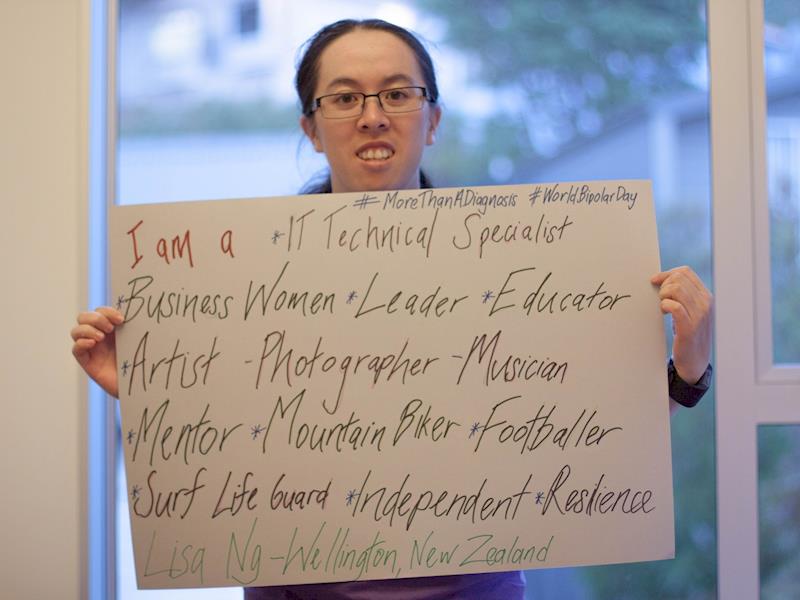 #MoreThanADiagnosis #WorldBipolarDay
I am a *IT Technical Specialist
*Business Women *Leader *Educator
*Artist -Photographer -Musician
*Mentor *Mountain Biker *Footballer
*Surf Life Guard *Independent *Resilience
Lisa Ng-Wellington, New Zealand